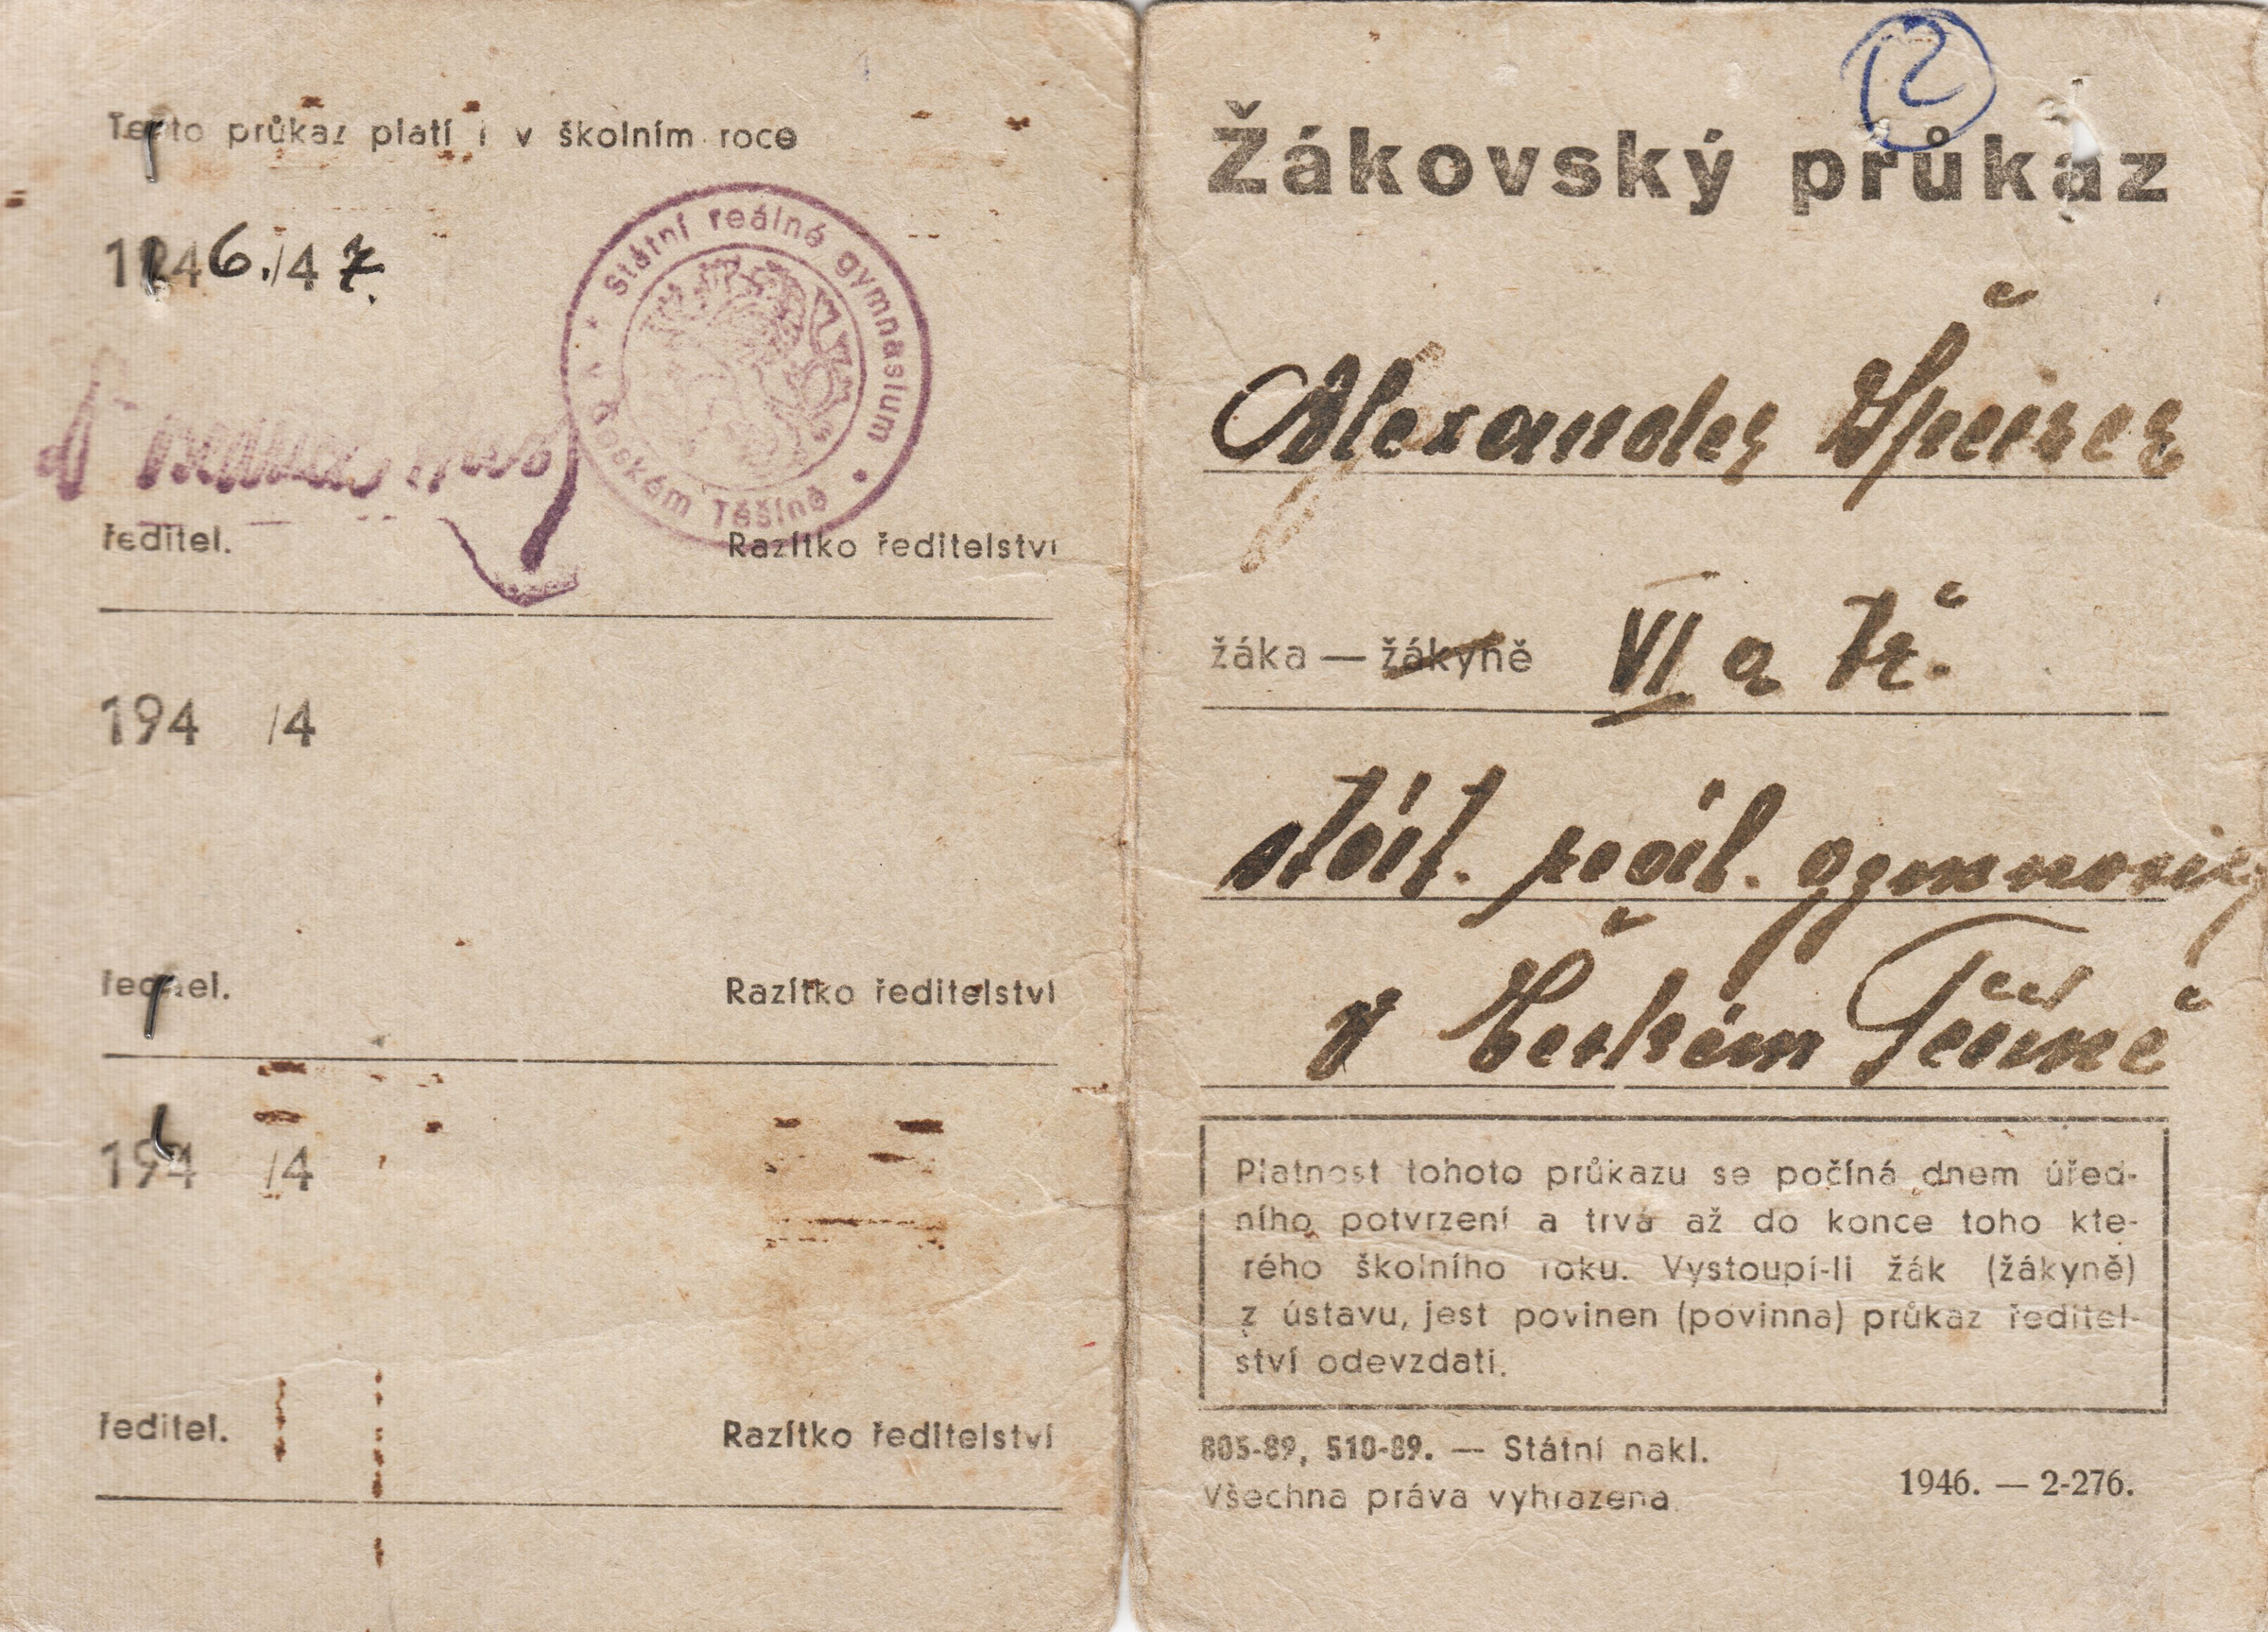 Tento průkaz platí i v školním roce
1946./47.
Státní reálné gymnasium
v Českém Těšíně
ředitel. Razítko ředitelství
194 /4
ředitel. Razítko ředitelství
194 /4
ředitel. Razítko ředitelství
12
Žákovský průkaz
Alexander Špeirer
žáka — žákyně VI a tř.
stát. reál. gymnasia
v Českém Těšíně
Platnost tohoto průkazu se počíná dnem úřed-
ního potvrzení a trvá až do konce toho kte-
rého školního roku. Vystoupí-li žák (žákyně)
z ústavu, jest povinen (povinna) průkaz ředitel-
ství odevzdati.
805-89, 510-89. — Státní nakl.
Všechna práva vyhrazena.
1946. — 2-276.